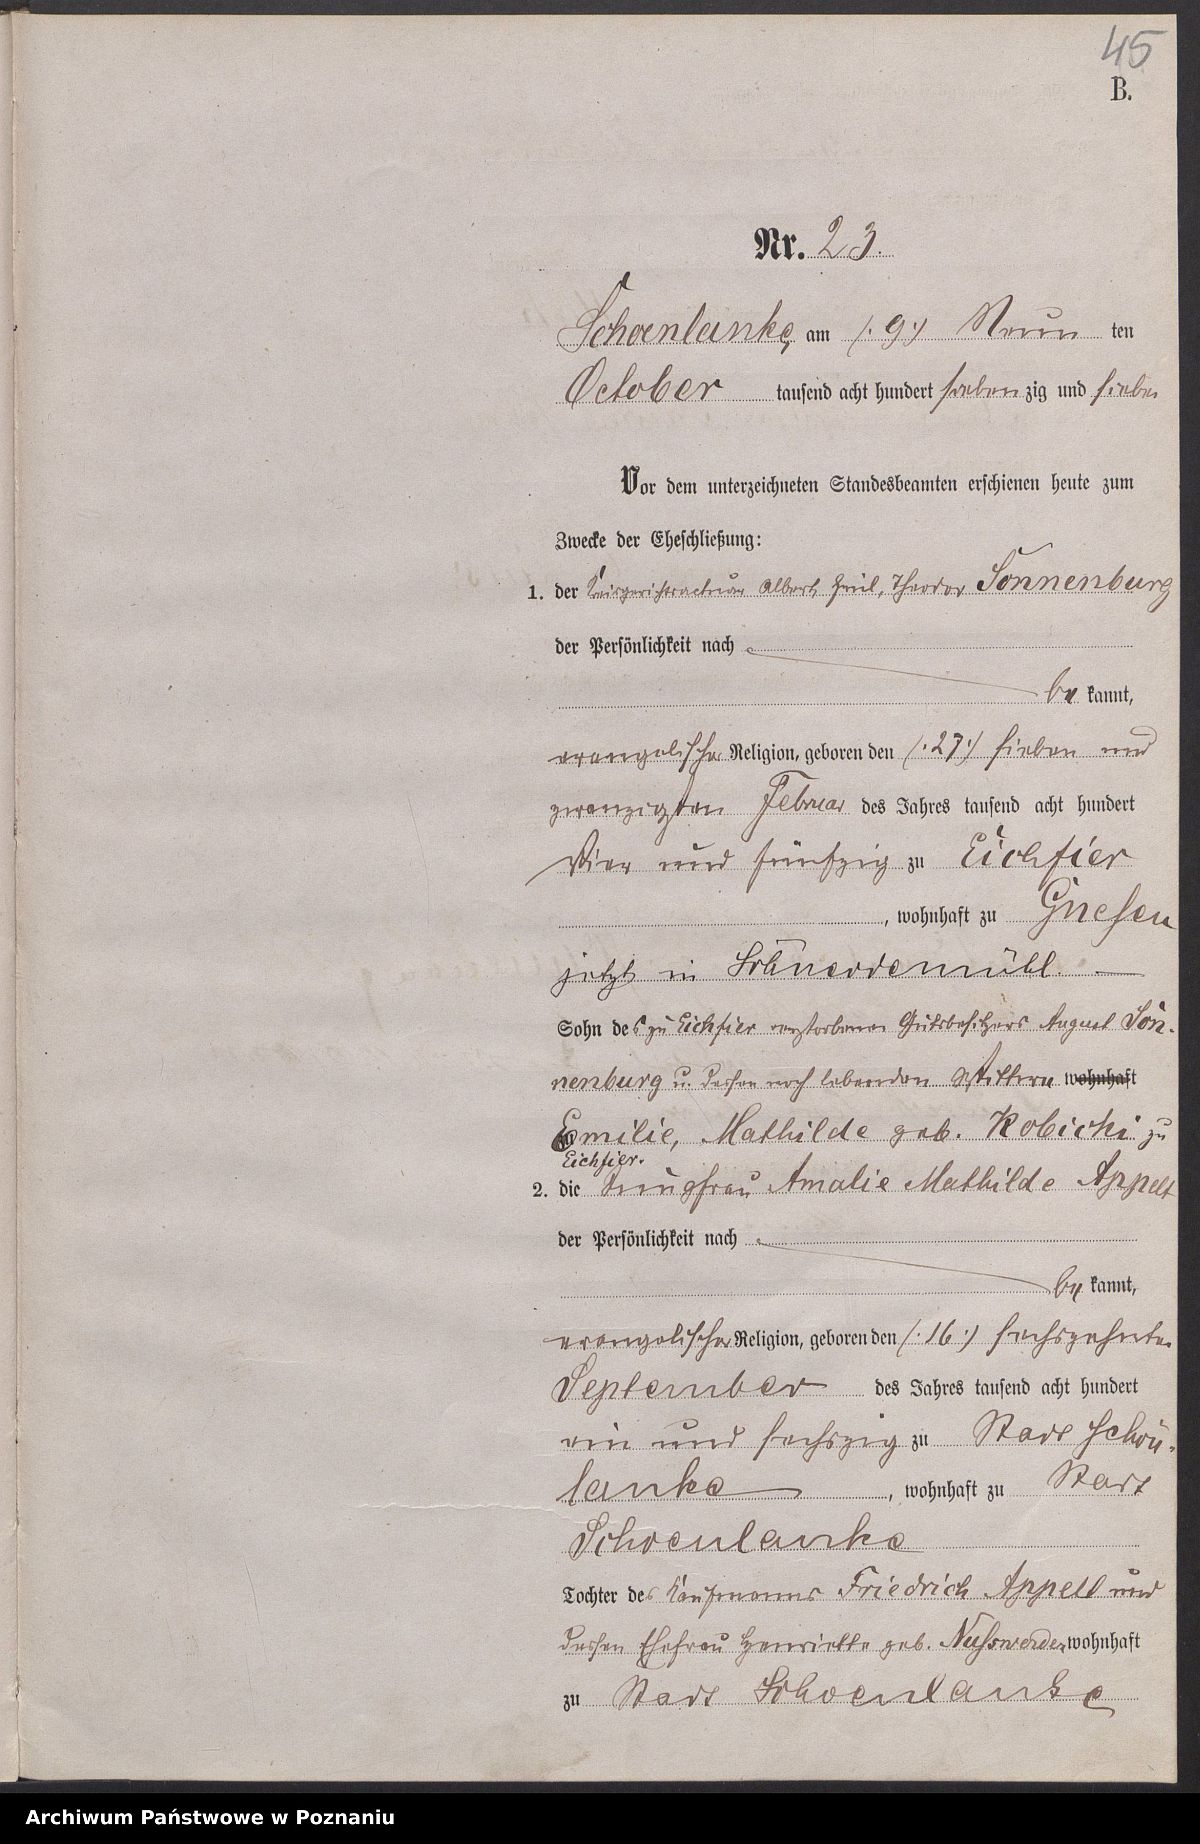 45
B.
Nr. 23.
Schoenlanke, am /. 9 ./ Neun ten
October tausend acht hundert sieben zig und sieben
Vor dem unterzeichneten Standesbeamten erschienen heute zum
Zwecke der Eheschließung:
1. der Kreisgerichtsactuar Albert, Emil, Theodor Sonnenburg
der Persönlichkeit nach
be kannt,
evangelischer Religion, geboren den /. 27 ./ sieben und
zwanzigsten Februar des Jahres tausend acht hundert
Vier und fünfzig zu Eichfier
, wohnhaft zu Gnesen
jetzt in Schneidemühl. —
Sohn des zu Eichfier verstorbenen Gutsbesitzers August Son-
nenburg u. dessen noch lebenden Wittwe wohnhaft
Emilie, Mathilde geb. Kobicki zu
Eichfier.
2. die Jungfrau Amalie Mathilde Appelt
der Persönlichkeit nach
be kannt,
evangelischer Religion, geboren den /. 16 ./ sechszehnten
September des Jahres tausend acht hundert
ein und sechszig zu Stadt Schön-
lanke , wohnhaft zu Stadt
Schoenlanke
Tochter des Kaufmanns Friedrich Appelt und
dessen Ehefrau Henriette geb. wohnhaft
zu Stadt Schoenlanke
Archiwum Państwowe w Poznaniu